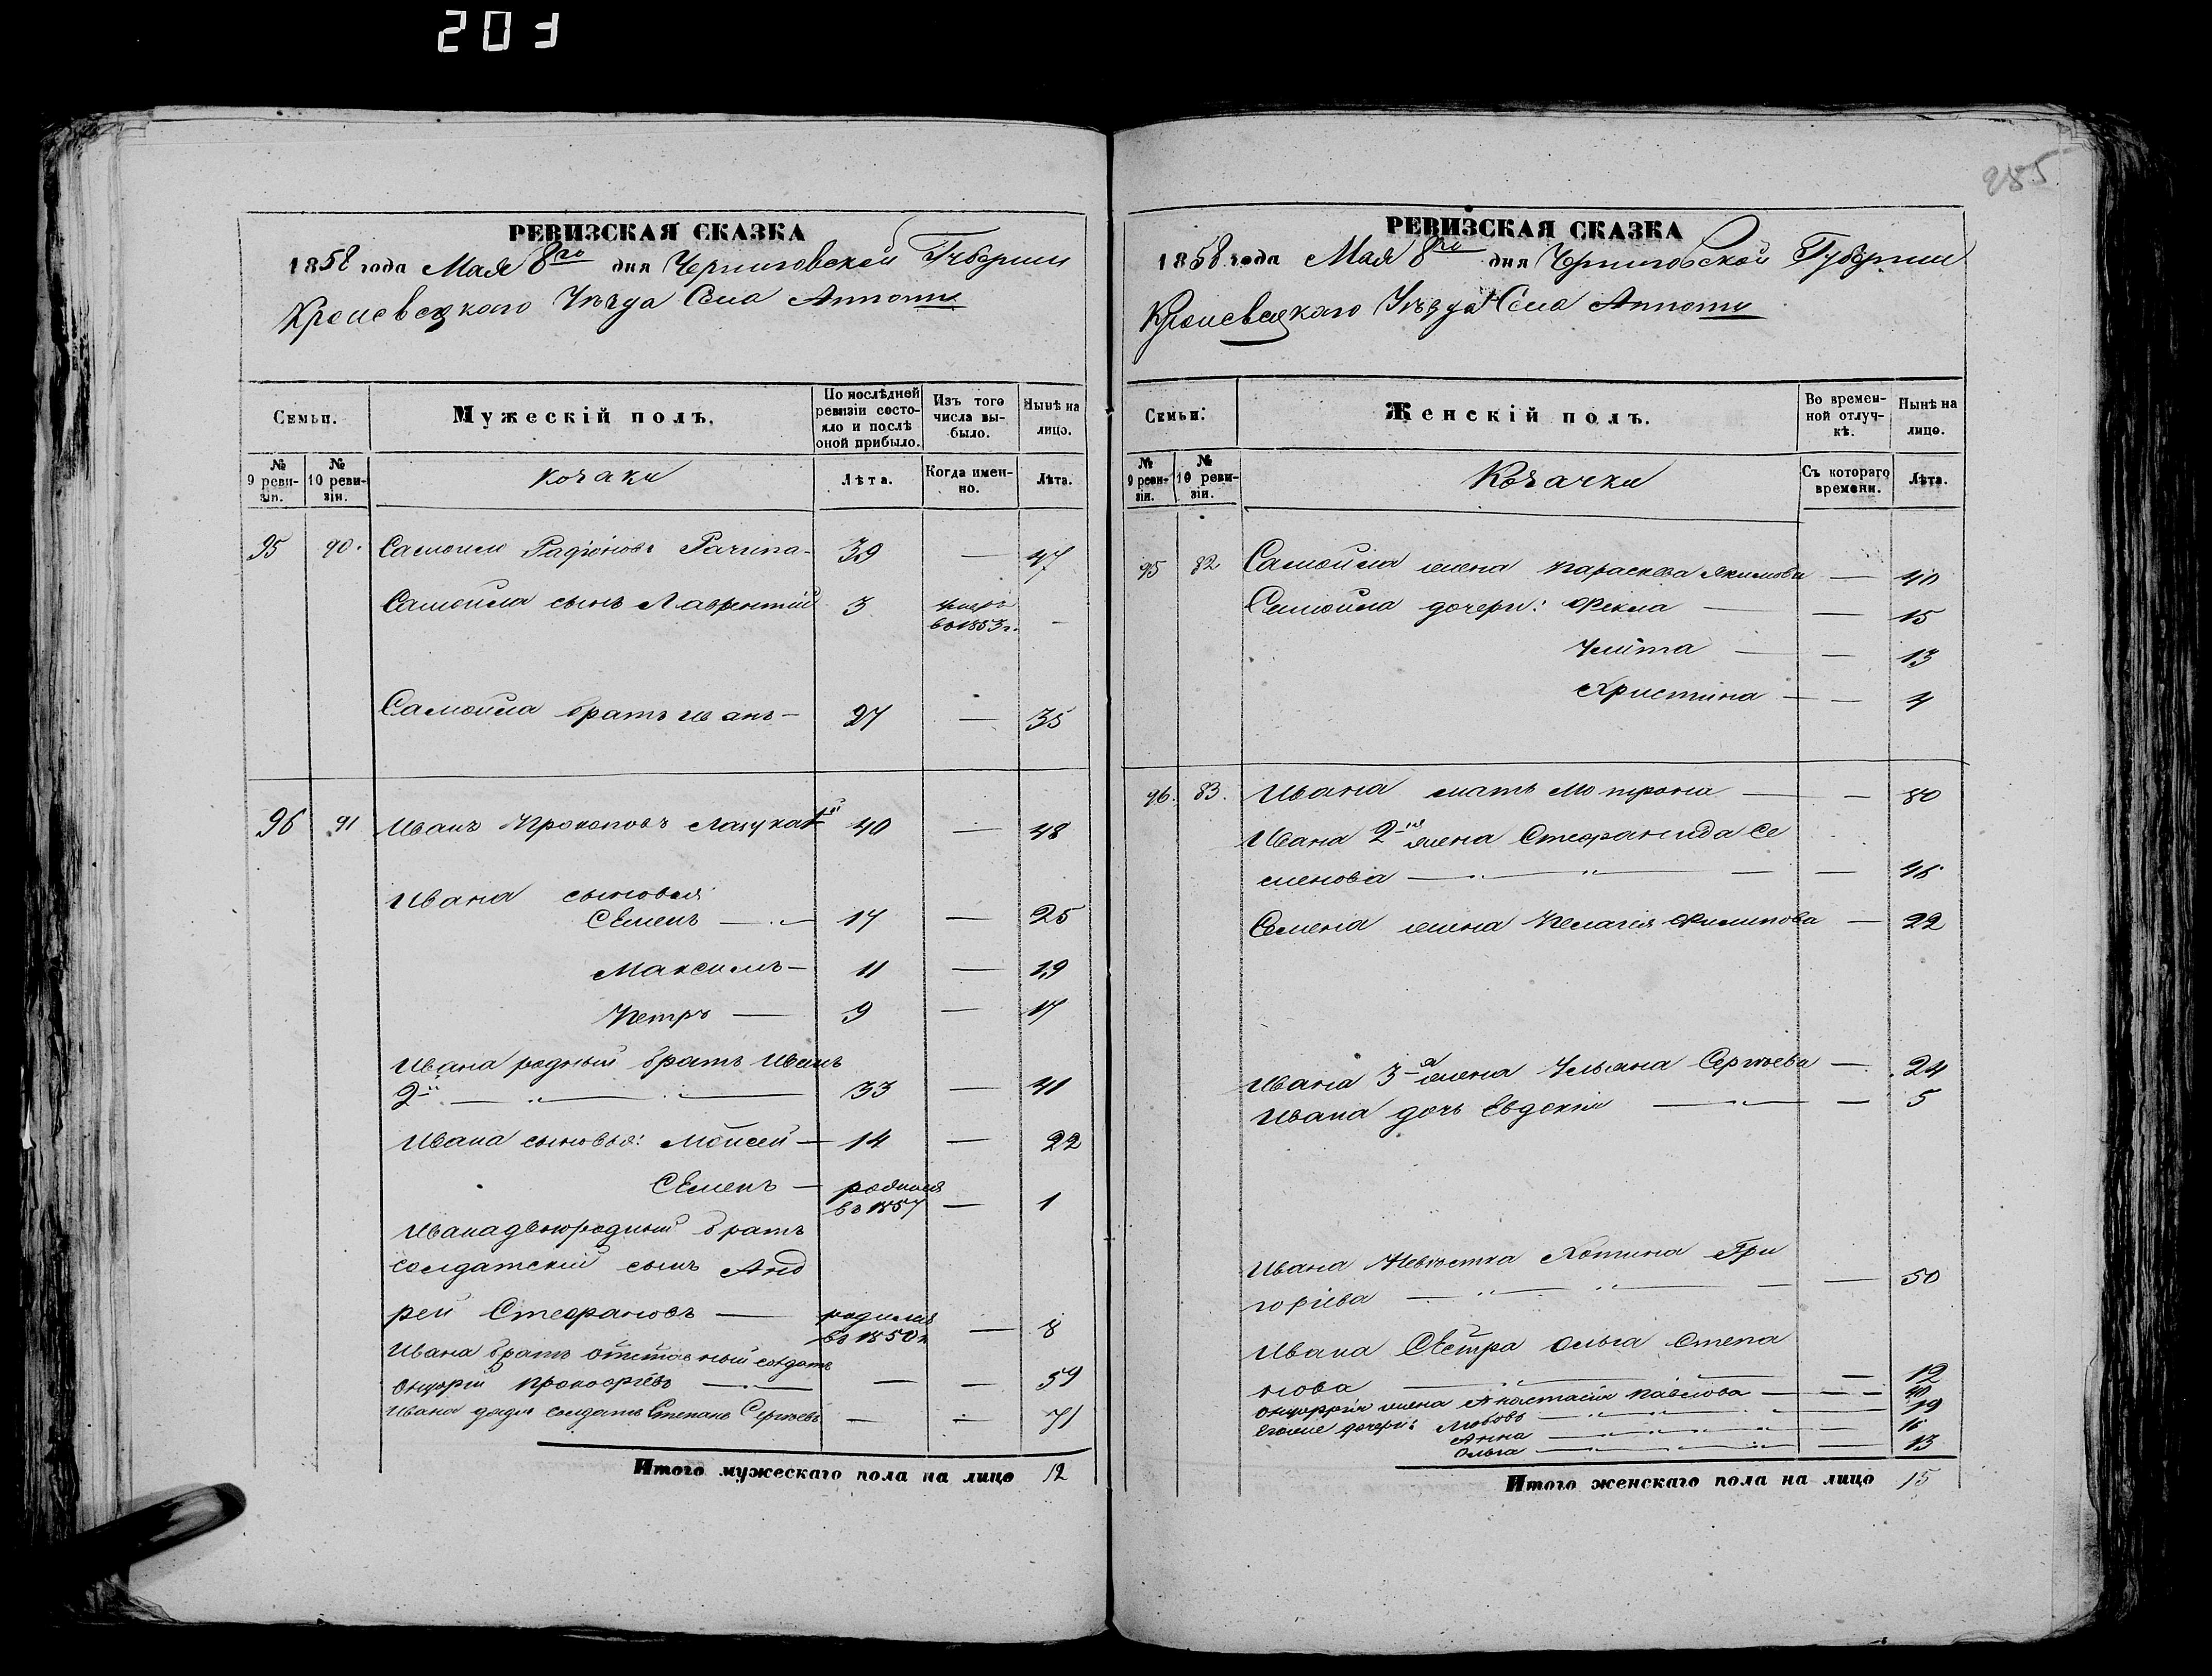 203
285
РЕВИЗСКАЯ СКАЗКА
1858 года Мая 8го дня Черниговской Губернии
Кролевецкаго Уѣзда Села
Семьи.
Мужескій полъ.
По послѣдней ревизіи состояло и послѣ оной прибыло.
Изъ того числа выбыло.
Нынѣ на лицо.
№ 9 ревизіи.
№ 10 ревизіи.
Козаки
Лѣта.
Когда именно.
Лѣта.
95 90. Самоило Радіоновъ 39 — 47
Самойла сынъ Лаврентій 3 умеръ въ 1853 г. -
Самойла братъ Иванъ — 27 — 35
96 91 Иванъ Прокоповъ Лазука 1й 40 — 48
Ивана сыновья
Семенъ — 17 — 25
Максимъ — 11 — 19
Петръ — 9 — 17
Ивана родный братъ Иванъ
2й — „ — 33 — 41
Ивана сыновья: Моисей — 14 — 22
Семенъ — родился въ 1857 — 1
Ивана двоюродный братъ
солдатскій сынъ Анд
рей Стефановъ — родился въ 1850 г. — 8
Ивана братъ отставный солдатъ
Онуфрій Прокофіевъ — — — 59
Ивана дядя солдатъ Степанъ Сергѣевъ — — 71
Итого мужескаго пола на лицо 12
РЕВИЗСКАЯ СКАЗКА
1858 года Мая 8го дня Черниговской Губернии
Кролевецкаго Уѣзда Села
Семьи.
Женскій полъ.
Во временной отлучкѣ.
Нынѣ на лицо.
№ 9 ревизіи.
№ 10 ревизіи.
Козачки
Съ котораго времени.
Лѣта.
95 82 Самойла жена Параскева Якимова — 40
Самойла дочери: Фекла — — 15
Улита — — 13
Христина — — 4
96. 83. Ивана мать Мотрона — — 80
Ивана 2я жена Стефанида Се
менова — „ — „ — — 46
Семена жена Пелагія Филипова — 22
Ивана 3я жена Ульяна Сергѣева — 24
Ивана дочь Евдокія — „ — — 5
Ивана Невѣстка Хотина Гри
горіева — „ — „ — — 50
Ивана Сестра Ольга Степа
нова — — 12
Онуфрія жена Анастасія Павлова — — 40
Егоже дочери: Любовь — „ — „ — 19
Анна — „ — „ — 16
Ольга — „ — „ — 13
Итого женскаго пола на лицо 15